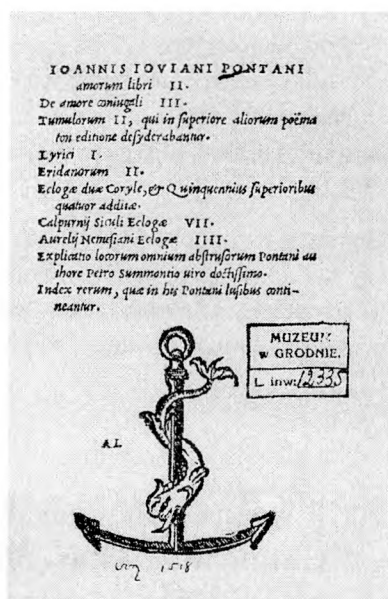 IOANNIS IOVIANI PONTANI
amorum libri II.
De amore coniugali III.
Tumulorum II, qui in superiore aliorum poëma
ton editione desyderabantur.
Lyrici I.
Eridanorum II.
Eclogæ duæ Coryle, & Quinquennius superioribus
quatuor additæ.
Calpurnij Siculi Eclogæ VII.
Aurelij Nemesiani Eclogæ IIII.
Explicatio locorum omnium abstrusorum Pontani au
thore Petro Summontio uiro doctissimo.
Index rerum, quæ in his Pontani lusibus conti-
neantur.
MUZEUM
w GRODNIE.
L. inw: 12335
AL
1518